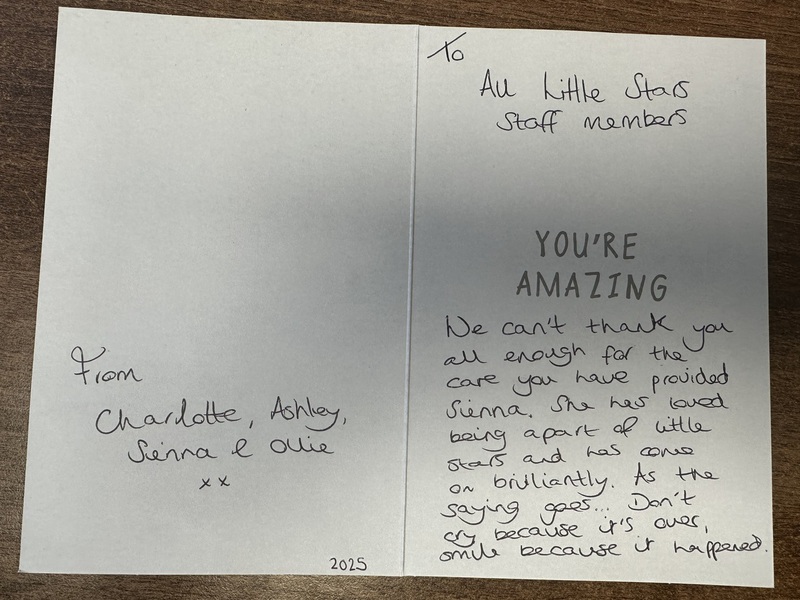 From
Charlotte, Ashley,
Sienna & Ollie
xx
2025
To
All Little Stars
Staff members
YOU'RE
AMAZING
We can't thank you
all enough for the
care you have provided
Sienna. She has loved
being apart of little
stars and has come
on brilliantly. As the
saying goes... Don't
cry because it's over,
smile because it happened.